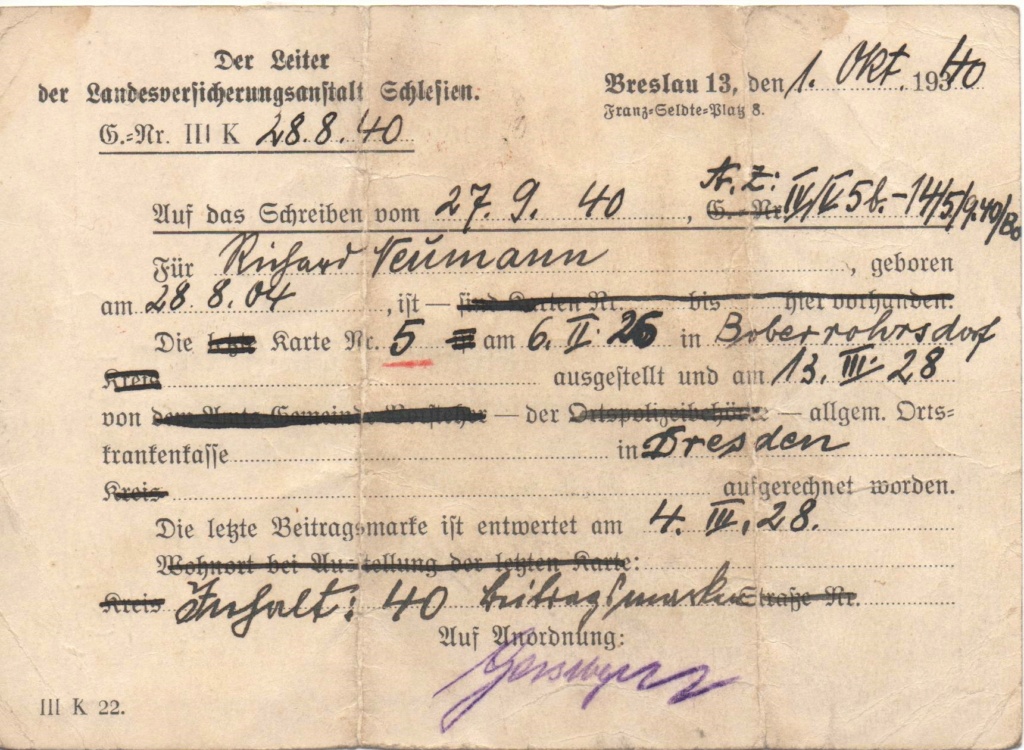 Der Leiter
der Landesversicherungsanstalt Schlesien.
Breslau 13, den 1. Okt. 19340
Franz-Seldte-Platz 8.
G.-Nr. III K 28.8.40
A.Z.:
Auf das Schreiben vom 27.9.40, G.-Nr. IV/V 5b.-14/5/9.40/Bo
Für Richard Neumann, geboren
am 28.8.04, ist — sind Karten Nr. bis hier vorhanden.
Die letzte Karte Nr. 5 am 6.II.26 in Boberröhrsdorf
Kreis ausgestellt und am 13.III.28
von dem Amts-Gemeinde-Vorsteher — der Ortspolizeibehörde — allgem. Orts-
krankenkasse in Dresden
Kreis aufgerechnet worden.
Die letzte Beitragsmarke ist entwertet am 4.III.28.
Wohnort bei Ausstellung der letzten Karte:
Kreis Inhalt: 40 Beitragsmarken Straße Nr.
Auf Anordnung:
III K 22.